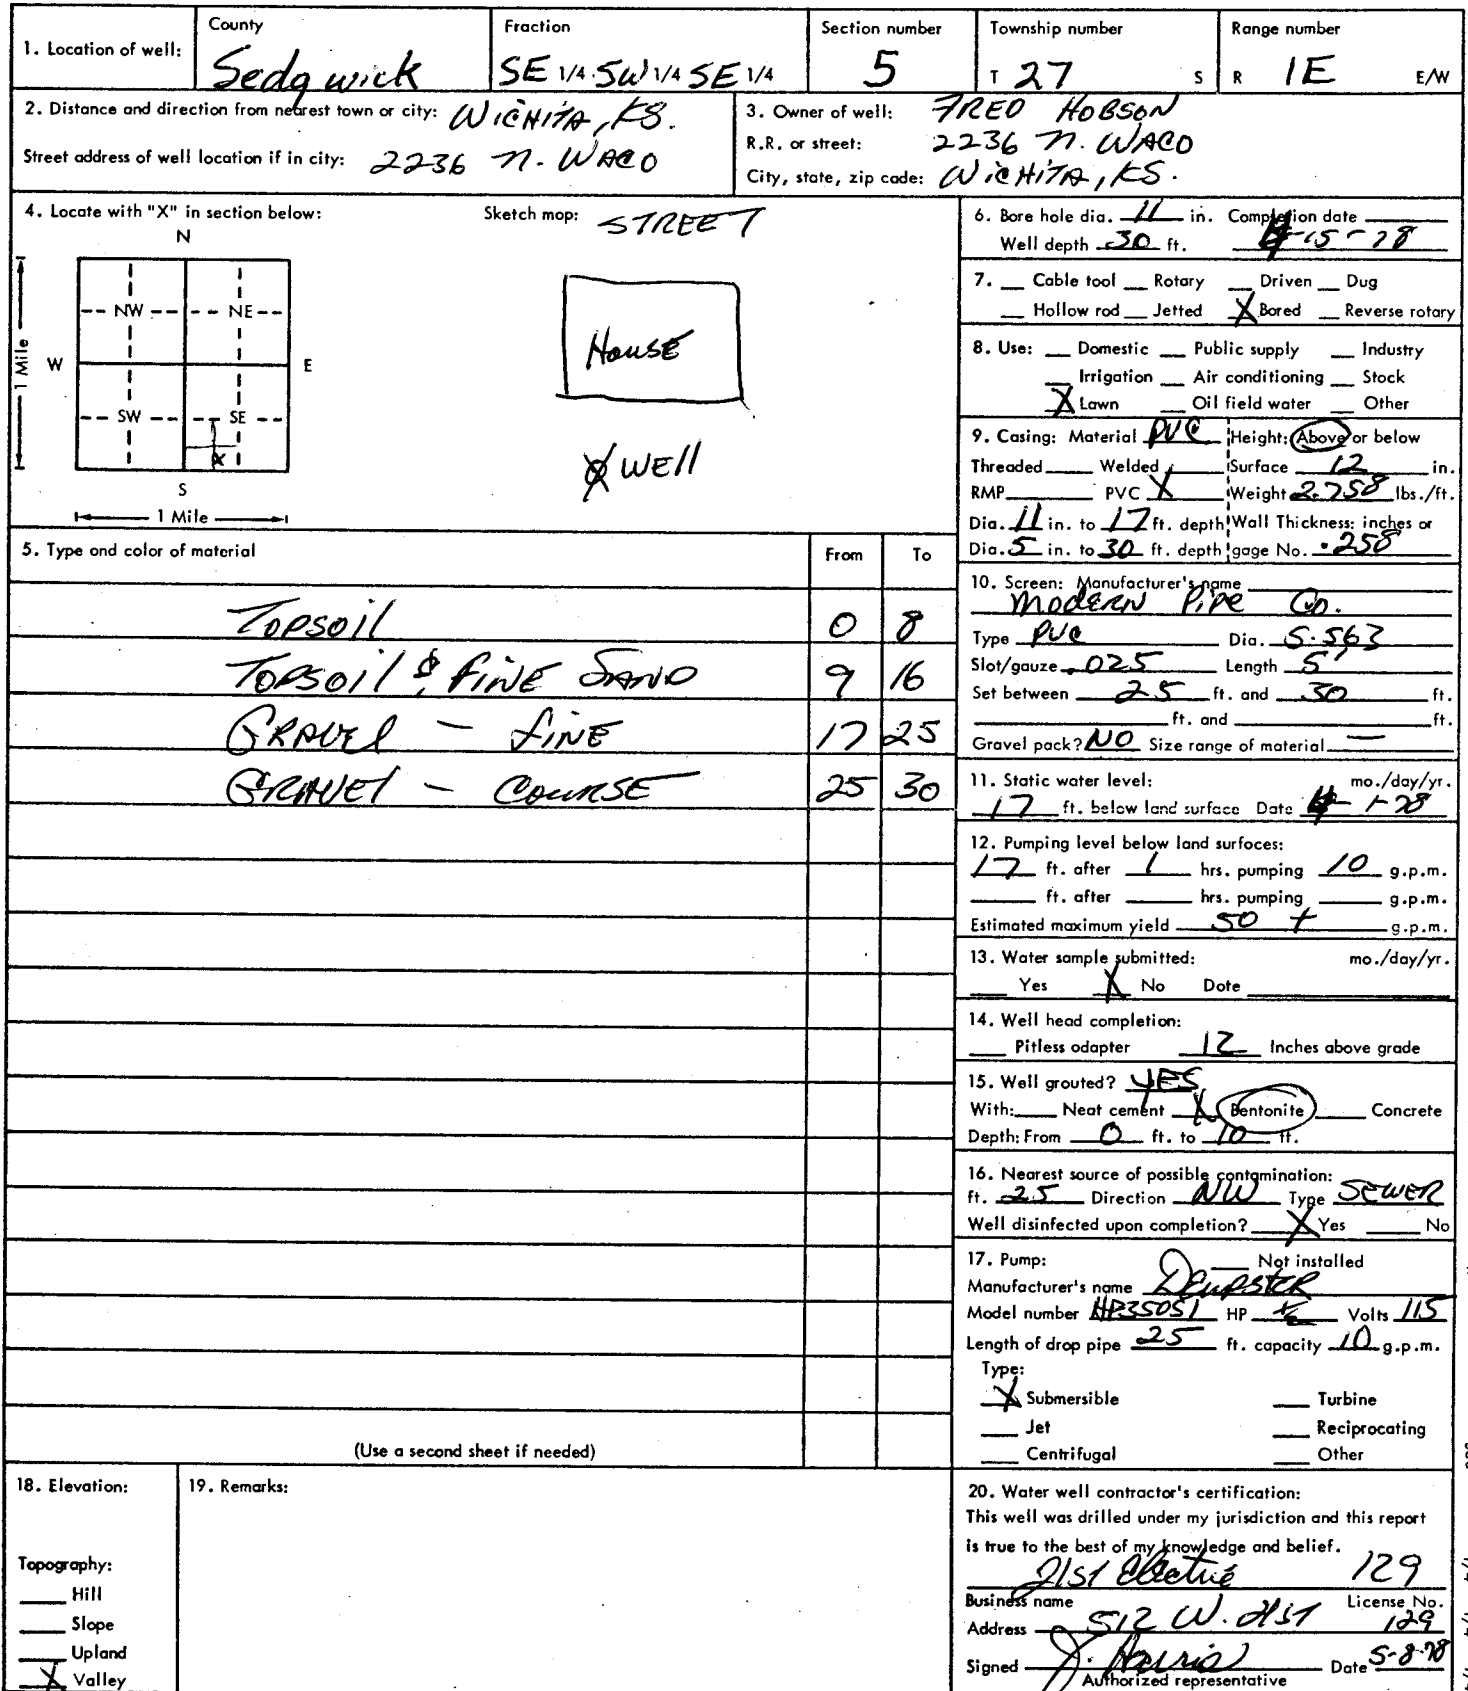 1. Location of well:
County
Sedgwick
Fraction
SE 1/4 SW 1/4 SE 1/4
Section number
5
Township number
T 27 S
Range number
R 1E E/W
2. Distance and direction from nearest town or city: WICHITA, KS.
Street address of well location if in city: 2236 N. WACO
3. Owner of well: FRED HOBSON
R.R. or street: 2236 N. WACO
City, state, zip code: WICHITA, KS.
4. Locate with "X" in section below:
N
NW NE
W E
SW SE
X
S
1 Mile
1 Mile
Sketch map: STREET
House
X WELL
5. Type and color of material From To
TOPSOIL 0 8
TOPSOIL & FINE SAND 9 16
GRAVEL - FINE 17 25
GRAVEL - COURSE 25 30
(Use a second sheet if needed)
6. Bore hole dia. 11 in. Completion date
Well depth 30 ft. 4-15-78
7. Cable tool Rotary Driven Dug
Hollow rod Jetted X Bored Reverse rotary
8. Use: Domestic Public supply Industry
Irrigation Air conditioning Stock
X Lawn Oil field water Other
9. Casing: Material PVC Height: Above or below
Threaded Welded Surface 12 in.
RMP PVC X Weight 2.758 lbs./ft.
Dia. 11 in. to 17 ft. depth Wall Thickness: inches or
Dia. 5 in. to 30 ft. depth gage No. .258
10. Screen: Manufacturer's name
MODERN PIPE CO.
Type PVC Dia. 5.563
Slot/gauze .025 Length 5'
Set between 25 ft. and 30 ft.
ft. and ft.
Gravel pack? NO Size range of material —
11. Static water level: mo./day/yr.
17 ft. below land surface Date 4-1-78
12. Pumping level below land surfaces:
17 ft. after 1 hrs. pumping 10 g.p.m.
ft. after hrs. pumping g.p.m.
Estimated maximum yield 50 + g.p.m.
13. Water sample submitted: mo./day/yr.
Yes X No Date
14. Well head completion:
Pitless adapter 12 Inches above grade
15. Well grouted? YES
With: Neat cement X Bentonite Concrete
Depth: From 0 ft. to 10 ft.
16. Nearest source of possible contamination:
ft. 25 Direction NW Type SEWER
Well disinfected upon completion? X Yes No
17. Pump: Not installed
Manufacturer's name DEMPSTER
Model number HP35051 HP 1/2 Volts 115
Length of drop pipe 25 ft. capacity 10 g.p.m.
Type:
X Submersible Turbine
Jet Reciprocating
Centrifugal Other
18. Elevation:
Topography:
Hill
Slope
Upland
X Valley
19. Remarks:
20. Water well contractor's certification:
This well was drilled under my jurisdiction and this report
is true to the best of my knowledge and belief.
21st Electric 129
Business name License No.
Address 512 W. 21ST 129
Signed J. Harris Date 5-8-78
Authorized representative